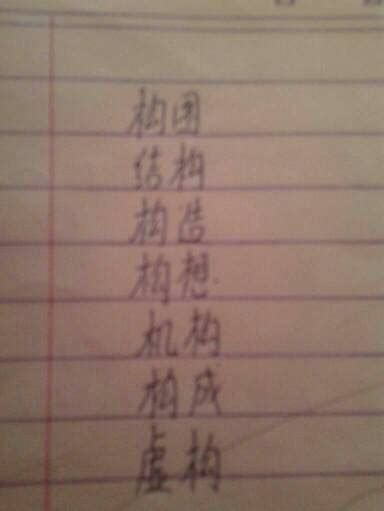 构团
结构
构造
构想
机构
构成
虚构